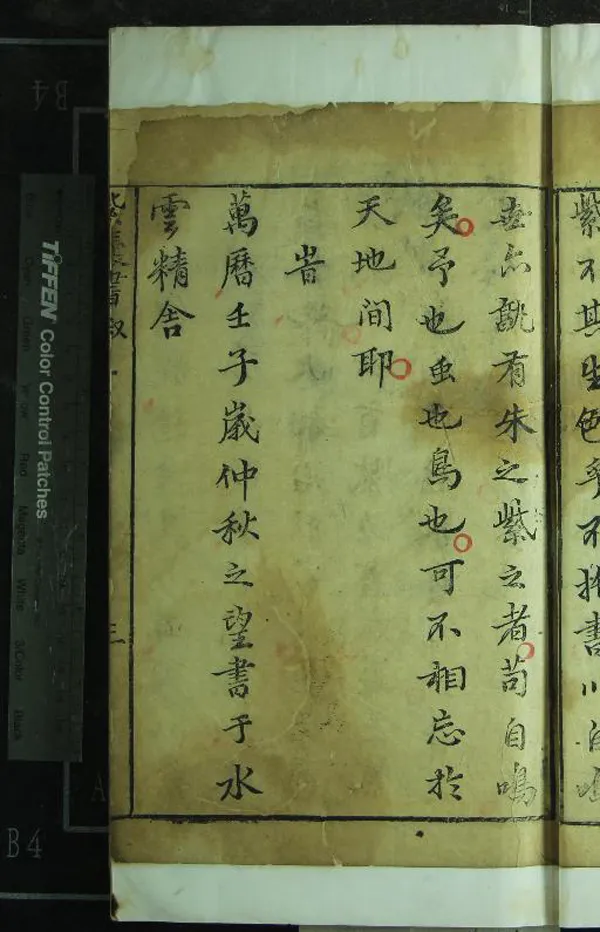 紫不其生色乎不書自鳴
有朱之紫云者苟自鳴
矣予也虫也鳥也可不相忘於
天地間耶
旹
萬曆壬子歲仲秋之望書于水
雲精舍
三
TIFFEN Color Control Patches
Magenta White 3/Color Black
B4
B4
A